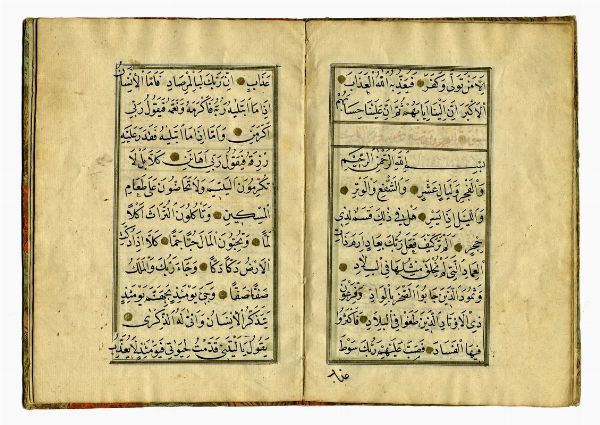 الا من تولى وكفر فيعذبه الله العذاب
الاكبر ان الينا ايابهم ثم ان علينا حسابهم
بسم الله الرحمن الرحيم
والفجر وليال عشر والشفع والوتر
والليل اذا يسر هل في ذلك قسم لذي
حجر الم تر كيف فعل ربك بعاد ارم ذات
العماد التي لم يخلق مثلها في البلاد
وثمود الذين جابوا الصخر بالواد وفرعون
ذي الاوتاد الذين طغوا في البلاد فاكثروا
فيها الفساد فصب عليهم ربك سوط
عذاب
عذاب ان ربك لبالمرصاد فاما الانسان
اذا ما ابتليه ربه فاكرمه ونعمه فيقول ربي
اكرمن واما اذا ما ابتليه فقدر عليه
رزقه فيقول ربي اهانن كلا بل لا
تكرمون اليتيم ولا تحاضون على طعام
المسكين وتاكلون التراث اكلا
لما وتحبون المال حبا جما كلا اذا دكت
الارض دكا دكا وجاء ربك والملك
صفا صفا وجئ يومئذ بجهنم يومئذ
يتذكر الانسان وانى له الذكرى
يقول يا ليتني قدمت لحيوتي فيومئذ لا يعذب